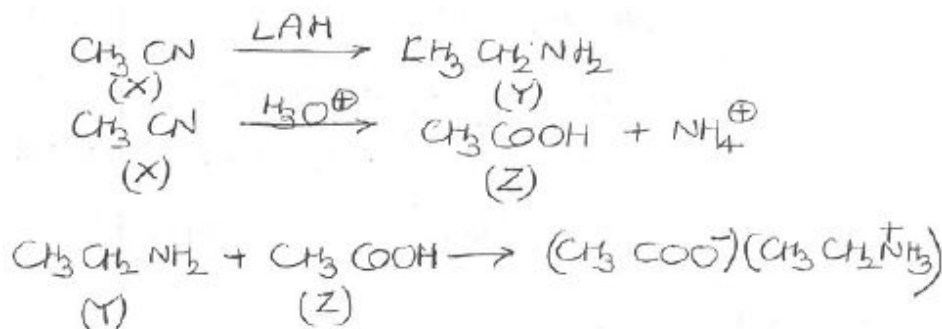 CH₃ CN —LAH→ CH₃ CH₂ NH₂
(X) (Y)
CH₃ CN —H₃O⊕→ CH₃ COOH + NH₄⊕
(X) (Z)
CH₃ CH₂ NH₂ + CH₃ COOH → (CH₃ COO⁻)(CH₃ CH₂ N⁺H₃)
(Y) (Z)